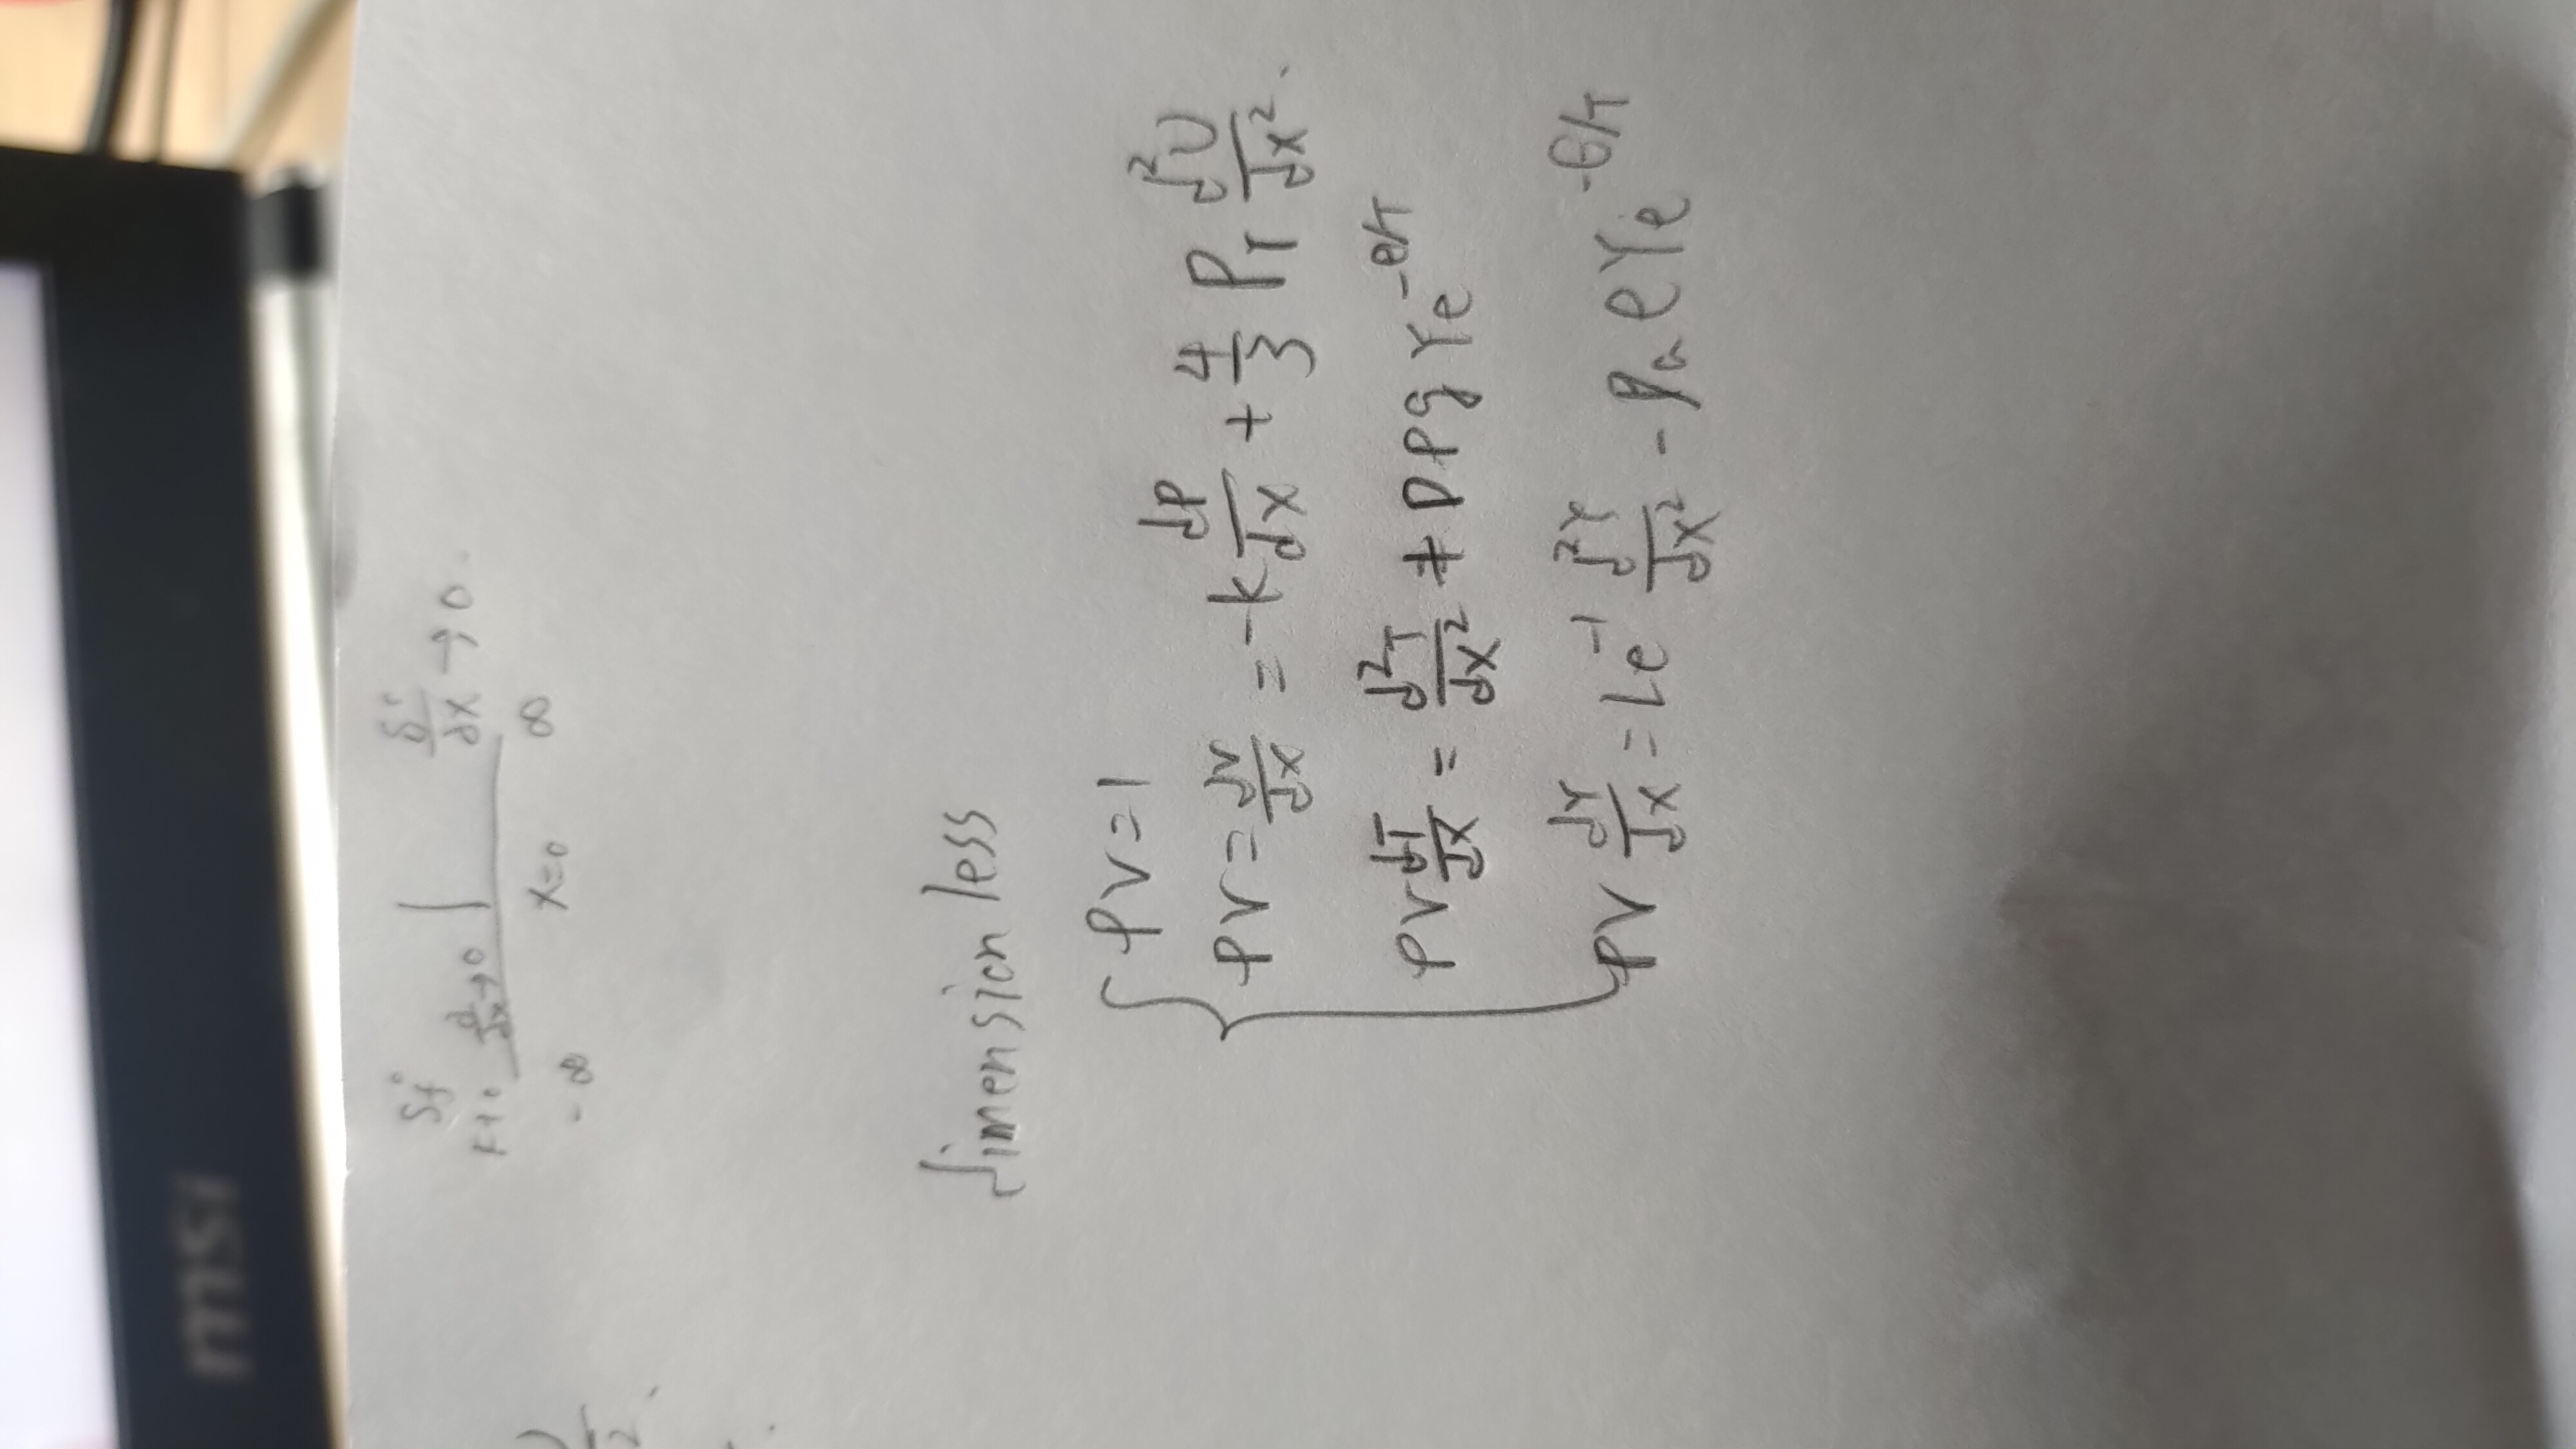 msi
S_f
x→0 d/dx→0
dS/dx→0.
-∞ x=0 ∞
dimensionless
ρV=1
ρV=dV/dx=-k dP/dx+4/3 Pr d²U/dx².
ρV dT/dx=d²T/dx²+Dρq Ye^-θ/T
ρV dY/dx=Le^-1 d²Y/dx²-Da ρYe^-θ/T